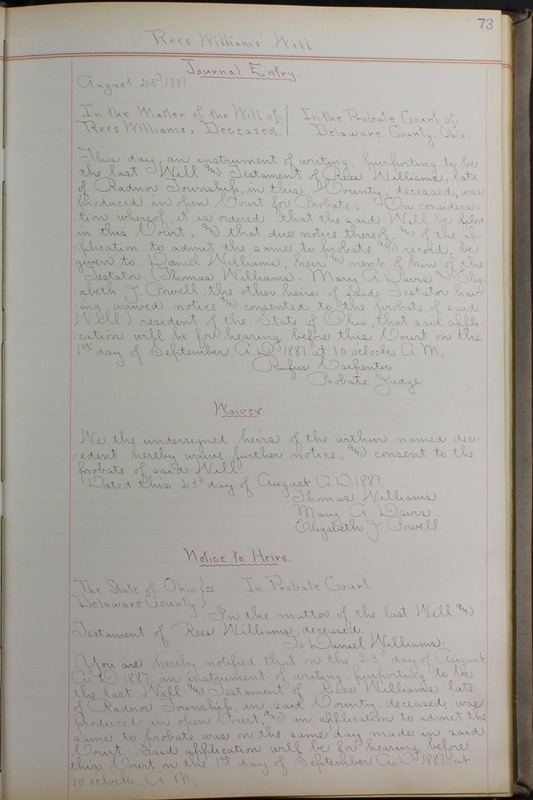 73
Rees Williams' Will
Journal Entry.
August 23d 1887
In the Matter of the Will of / In the Probate Court of
Rees Williams, Deceased. / Delaware County, Ohio.
This day, an instrument of writing, purporting to be
the last Will and Testament of Rees Williams, late
of Radnor Township, in this County, deceased, was
produced in open Court for Probate; On considera-
tion whereof, it is ordered that the said Will be filed
in this Court, and that due notice thereof, and of the ap-
plication to admit the same to probate and record, be
given to Daniel Williams, heir and next of kin of the
Testator (Thomas Williams. Mary A. Davis and Eliz-
abeth J. Powell, the other heirs of said Testator hav-
ing waived notice and consented to the probate of said
Will) resident of the State of Ohio, that said appli-
cation will be for hearing before this Court on the
1st day of September A.D. 1887 at 10 oclock A.M.
Rufus Carpenter
Probate Judge
Waiver
We the undersigned heirs of the within named dec-
edent, hereby waive further notice, and consent to the
probate of said Will.
Dated this 23d day of August A.D. 1887.
Thomas Williams
Mary A. Davis
Elizabeth J. Powell.
Notice to Heirs.
The State of Ohio } ss. In Probate Court.
Delaware County }
In the matter of the last Will and
Testament of Rees Williams, deceased.
To Daniel Williams:
You are hereby notified that on the 23d day of August
A.D. 1887 an instrument of writing, purporting to be
the last Will and Testament of Rees Williams late
of Radnor Township, in said County, deceased was
produced in open Court, and an application to admit the
same to probate was on the same day made in said
Court. Said application will be for hearing before
this Court on the 1st day of September A.D. 1887 at
10 oclock, A.M.